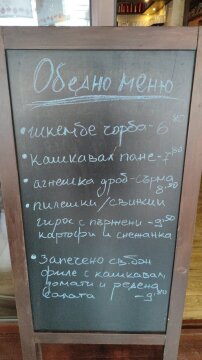 Обедно меню
• шкембе чорба - 6.80
• Кашкавал пане - 7.80
• агнешка дроб-сърма
8.90
• пилешки/свински
гирос с пържени - 9.50
картофи и снежанка
• Запечено св. бон
филе с кашкавал,
домати и зелена
салата - 9.80